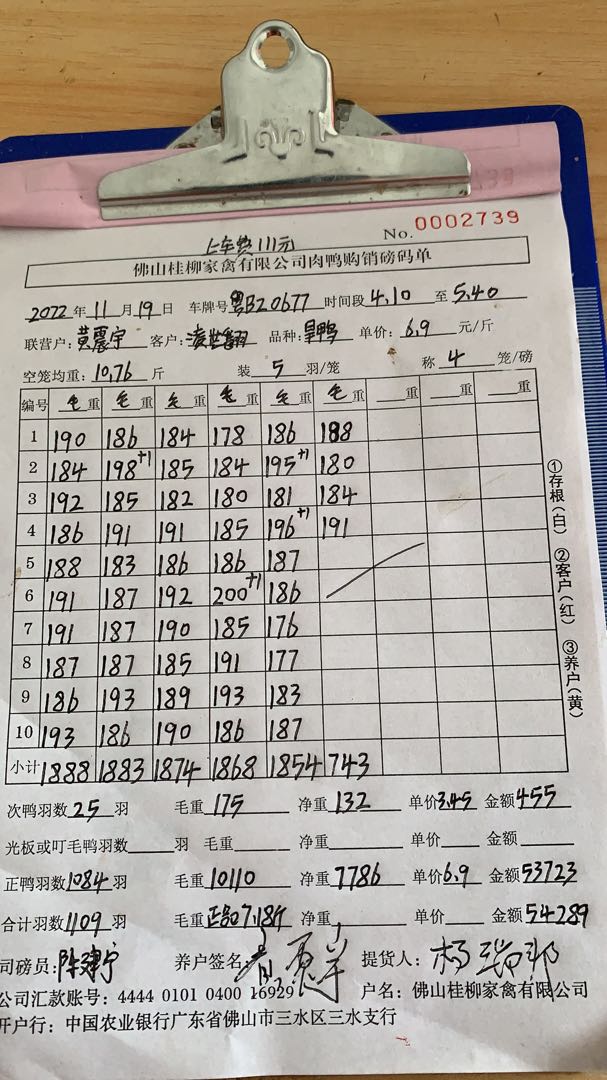 No. 0002739
上车费111元
佛山桂柳家禽有限公司肉鸭购销磅码单
2022年11月19日 车牌号粤B20677 时间段4.10至5.40
联营户:黄震宇 客户: 品种:旱鸭 单价:6.9元/斤
空笼均重:10.76斤 装5羽/笼 称4笼/磅
编号 毛重 毛重 毛重 毛重 毛重 毛重 重 重 重
1 190 186 184 178 186 188
2 184 198+1 185 184 195+1 180
3 192 185 182 180 181 184
4 186 191 191 185 196+1 191
5 188 183 186 186 187
6 191 187 192 200+1 186
7 191 187 190 185 176
8 187 187 185 191 177
9 186 193 189 193 183
10 193 186 190 186 187
小计 1888 1883 1874 1868 1854 743
①存根(白) ②客户(红) ③养户(黄)
次鸭羽数25羽 毛重175 净重132 单价3.45 金额455
光板或叮毛鸭羽数 羽 毛重 净重 单价 金额
正鸭羽数1084羽 毛重10110 净重7786 单价6.9 金额53723
合计羽数1109羽 毛重正均7.18斤 净重 单价 金额54289
司磅员: 养户签名: 提货人:杨瑞邦
公司汇款账号:4444 0101 0400 16929 户名:佛山桂柳家禽有限公司
开户行:中国农业银行广东省佛山市三水区三水支行